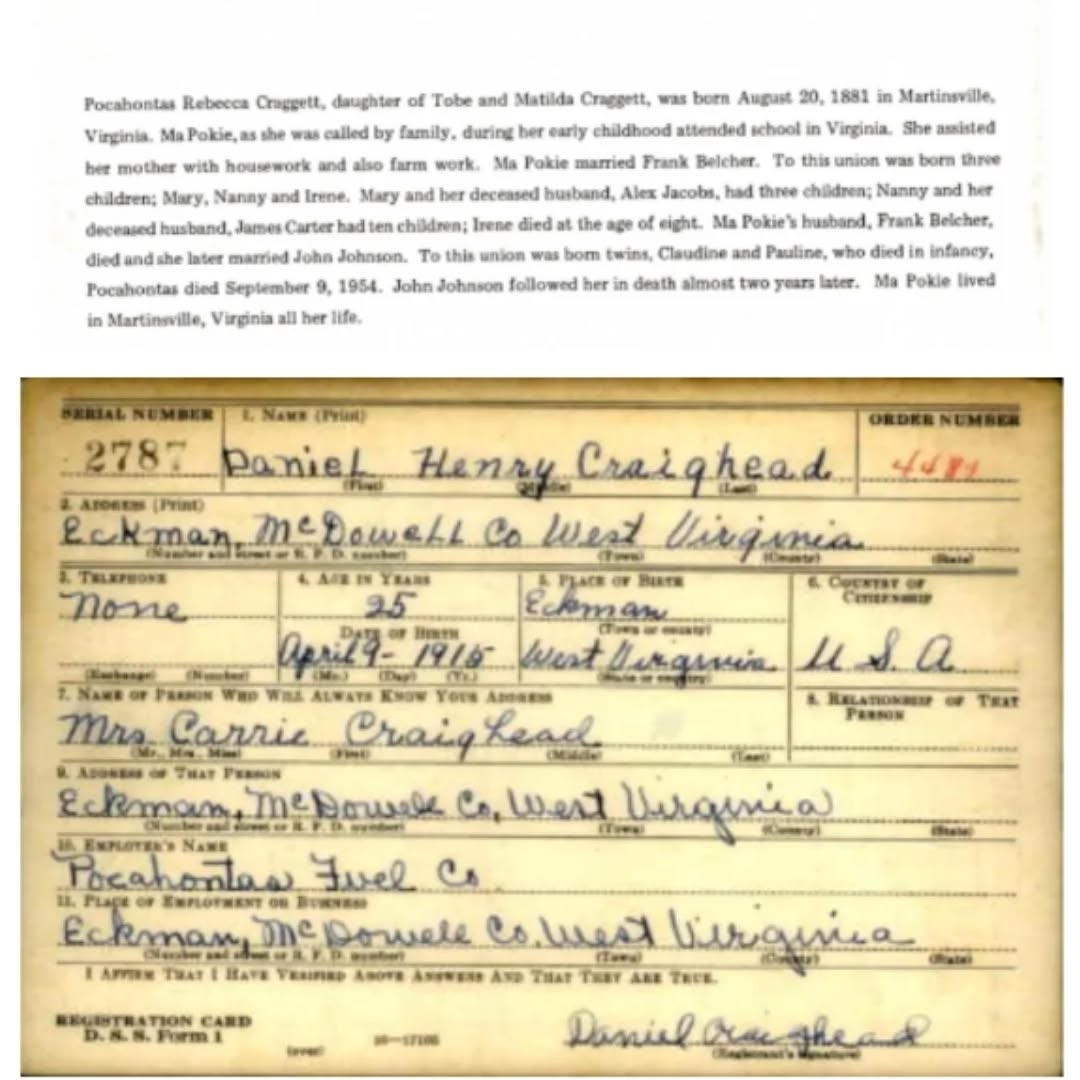 Pocahontas Rebecca Craggett, daughter of Tobe and Matilda Craggett, was born August 20, 1881 in Martinsville,
Virginia. Ma Pokie, as she was called by family, during her early childhood attended school in Virginia. She assisted
her mother with housework and also farm work. Ma Pokie married Frank Belcher. To this union was born three
children; Mary, Nanny and Irene. Mary and her deceased husband, Alex Jacobs, had three children; Nanny and her
deceased husband, James Carter had ten children; Irene died at the age of eight. Ma Pokie's husband, Frank Belcher,
died and she later married John Johnson. To this union was born twins, Claudine and Pauline, who died in infancy,
Pocahontas died September 9, 1954. John Johnson followed her in death almost two years later. Ma Pokie lived
in Martinsville, Virginia all her life.
SERIAL NUMBER 1. NAME (Print) ORDER NUMBER
2787 Daniel Henry Craighead
(First) (Middle) (Last)
2. ADDRESS (Print)
Eckman, McDowell Co West Virginia
(Number and street or R. F. D. number) (Town) (County) (State)
3. TELEPHONE 4. AGE IN YEARS 5. PLACE OF BIRTH 6. COUNTRY OF CITIZENSHIP
None 25 Eckman
DATE OF BIRTH (Town or county)
April 9- 1915 West Virginia U S. A
(Exchange) (Number) (Mo.) (Day) (Yr.) (State or country)
7. NAME OF PERSON WHO WILL ALWAYS KNOW YOUR ADDRESS 8. RELATIONSHIP OF THAT PERSON
Mrs Carrie Craighead
(Mr., Mrs., Miss) (First) (Middle) (Last)
9. ADDRESS OF THAT PERSON
Eckman, McDowell Co, West Virginia
(Number and street or R. F. D. number) (Town) (County) (State)
10. EMPLOYER'S NAME
Pocahontas Fuel Co
11. PLACE OF EMPLOYMENT OR BUSINESS
Eckman, McDowell Co. West Virginia
(Number and street or R. F. D. number) (Town) (County) (State)
I AFFIRM THAT I HAVE VERIFIED ABOVE ANSWERS AND THAT THEY ARE TRUE.
REGISTRATION CARD
D. S. S. Form 1 (over) Daniel Craighead
(Registrant's signature)